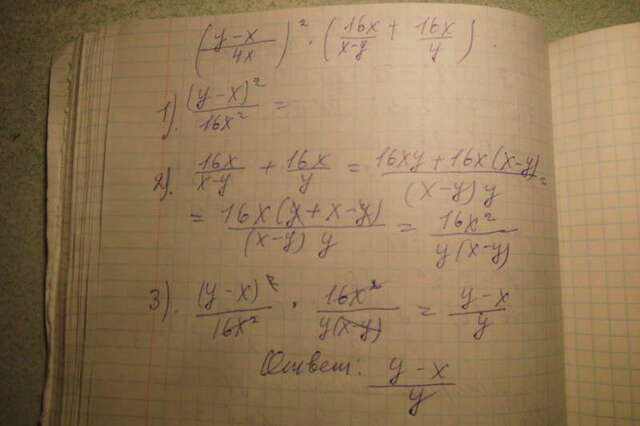 ((y-x)/4x)² · (16x/(x-y) + 16x/y).
1). (y-x)²/16x² =
2). 16x/(x-y) + 16x/y = (16xy+16x(x-y))/((x-y)y) =
= 16x(y+x-y)/((x-y)y) = 16x²/(y(x-y))
3). (y-x)²/16x² · 16x²/(y(x-y)) = (y-x)/y
Ответ: (y-x)/y